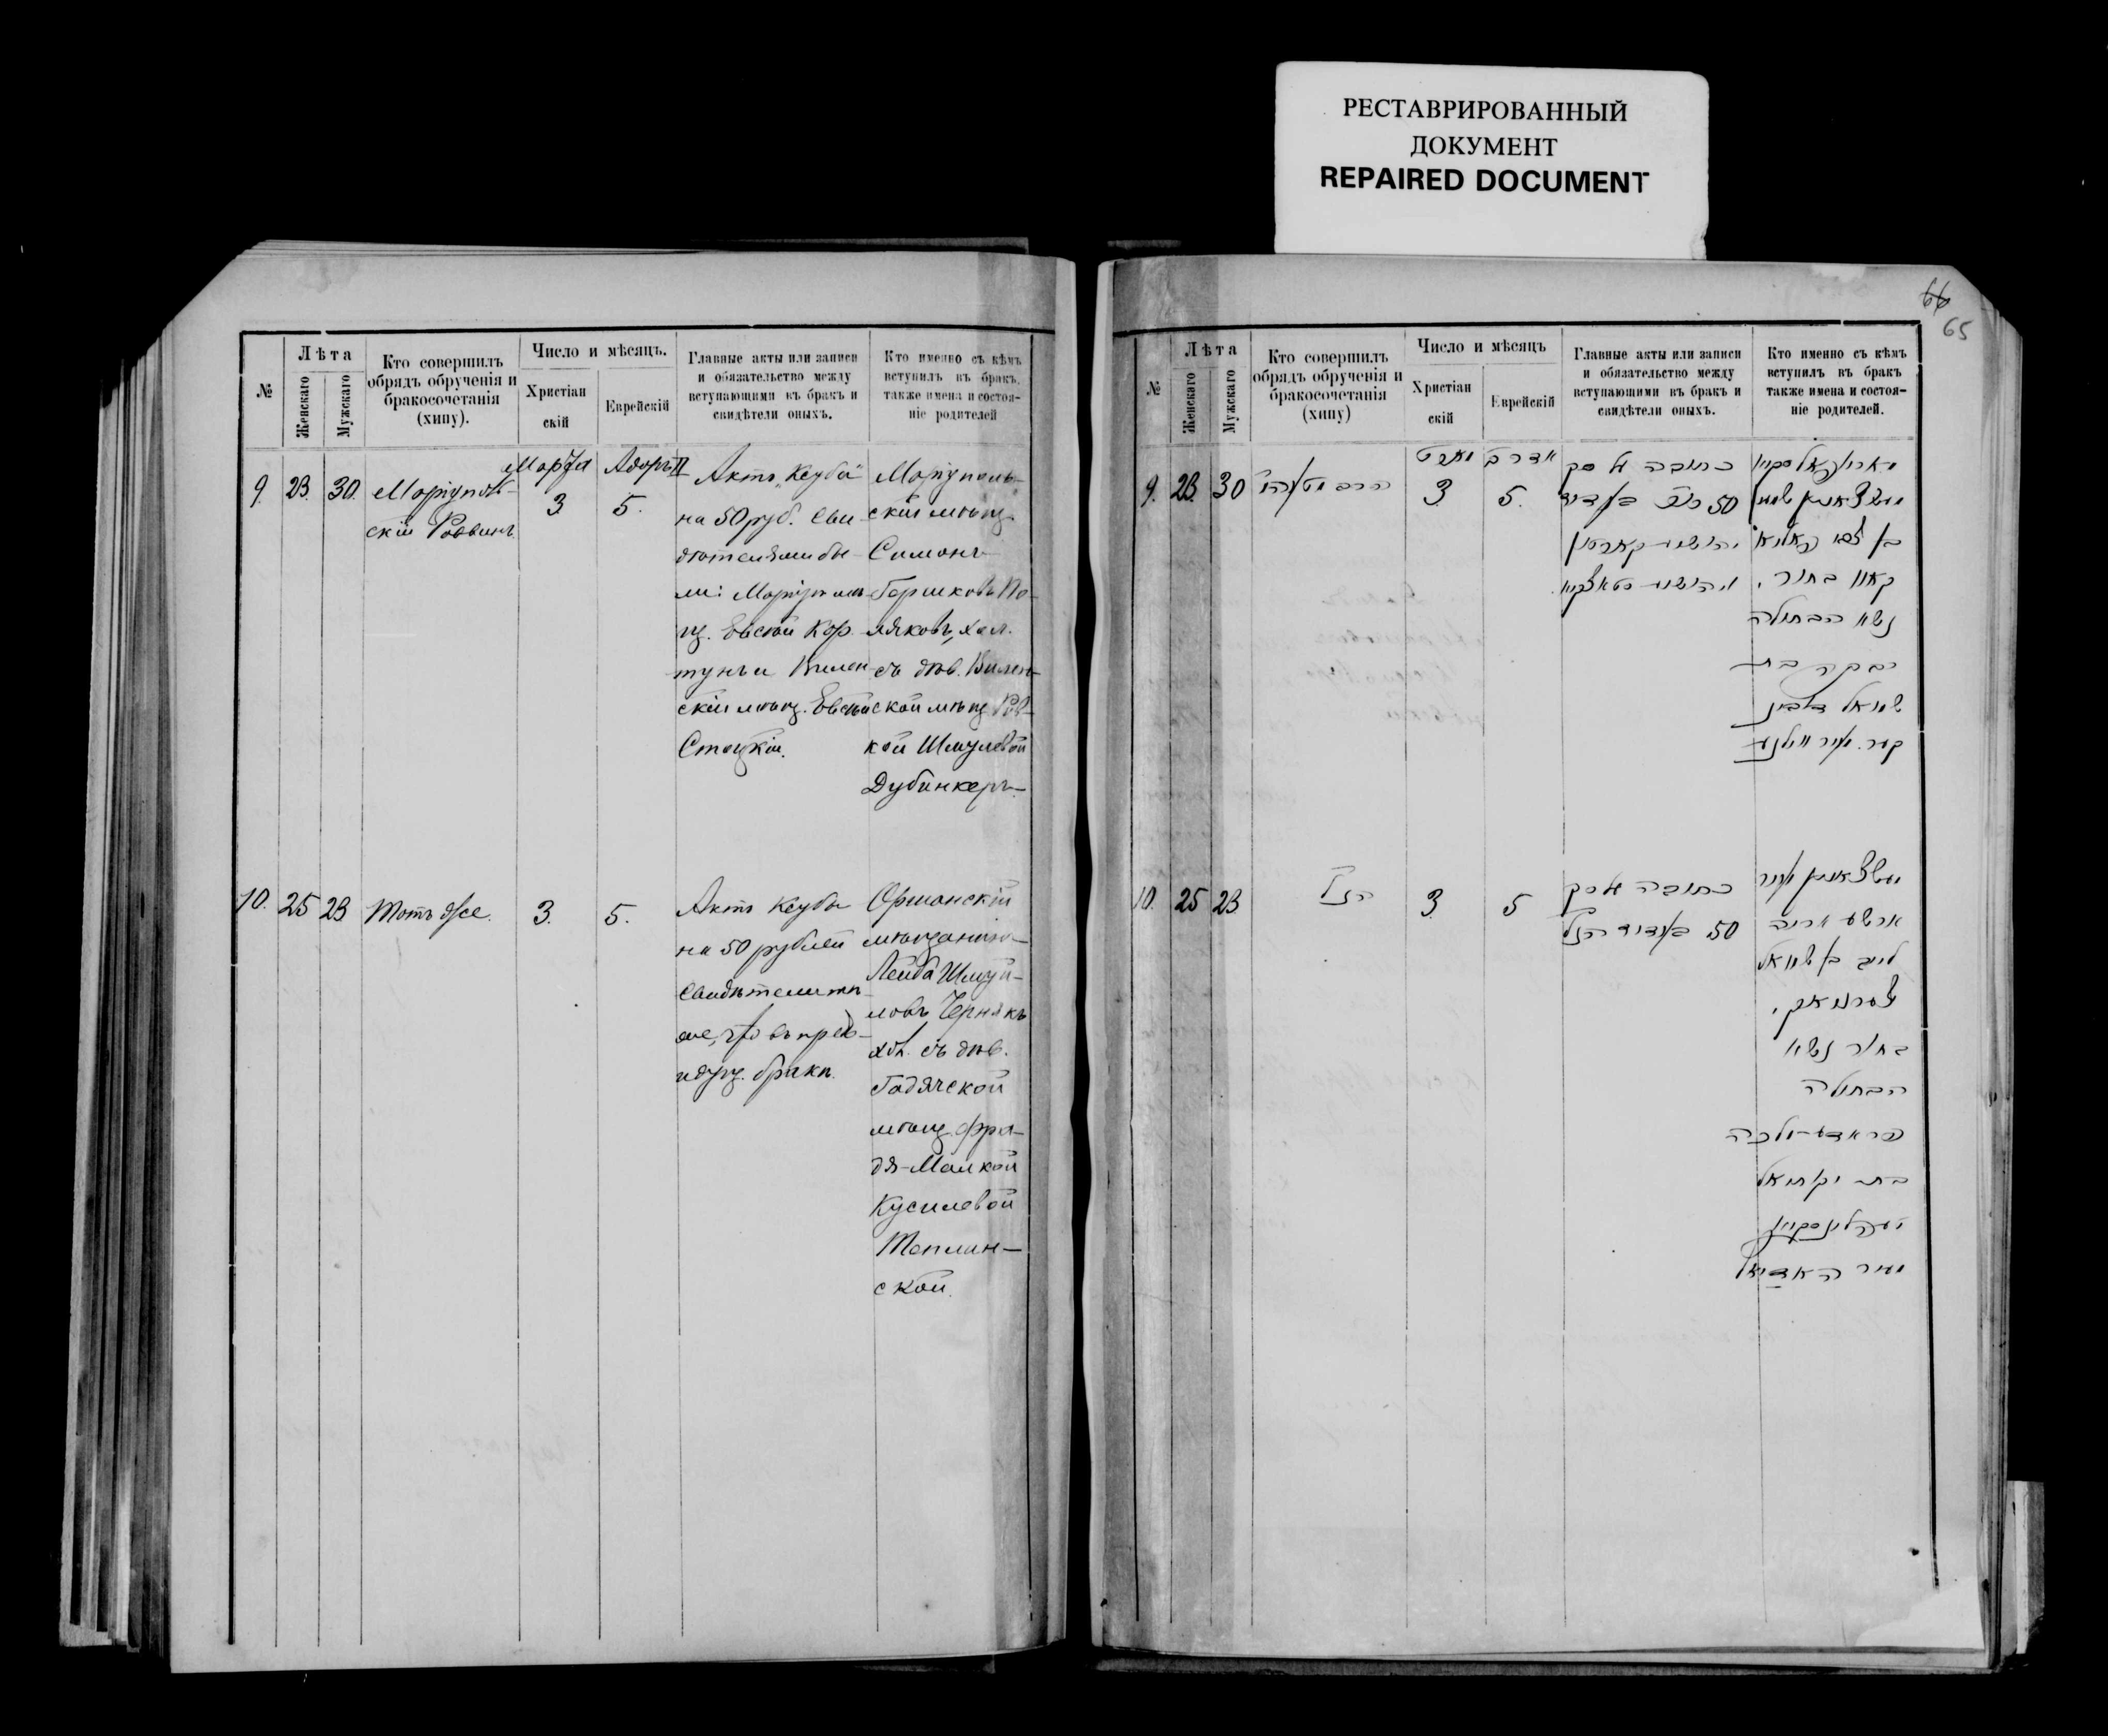 РЕСТАВРИРОВАННЫЙ
ДОКУМЕНТ
REPAIRED DOCUMENT
№
Лѣта
Женскаго
Мужскаго
Кто совершилъ
обрядъ обрученія и
бракосочетанія
(хипу).
Число и мѣсяцъ.
Христіан
скій
Еврейскій
Главные акты или записи
и обязательство между
вступающими въ бракъ и
свидѣтели оныхъ.
Кто именно съ кѣмъ
вступилъ въ бракъ,
также имена и состоя-
ніе родителей
9.
23.
30.
Маріуполь-
скій Раввинъ
Марта
3
Адоръ II
5.
Актъ „Кеуба"
на 50 руб. Сви-
дѣтелями бы-
ли: Маріупол.
мѣщ. Евсей Кор-
тунъ и Вилен-
скій мѣщ. Евсей
Стоцкій.
Маріуполь-
скій мѣщ.
Симонъ
Гершковъ По-
ляковъ, хол.
съ дѣв. Вилен-
ской мѣщ. Рив-
кой Шмулевой
Дубинкеръ
10.
25
23
Тотъ же.
3.
5.
Актъ Кеуба
на 50 рублей
Свидѣтели тѣ
же, что въ пред-
идущ. бракѣ.
Оршанскій
мѣщанинъ
Лейба Шмуй-
ловъ Чернякъ
хол. съ дѣв.
Гадячской
мѣщ. Фра-
дя-Малкой
Кусилевой
Теплин-
ской.
66
65
№
Лѣта
Женскаго
Мужскаго
Кто совершилъ
обрядъ обрученія и
бракосочетанія
(хипу)
Число и мѣсяцъ
Христіан
скій
Еврейскій
Главные акты или записи
и обязательство между
вступающими въ бракъ и
свидѣтели оныхъ.
Кто именно съ кѣмъ
вступилъ въ бракъ
также имена и состоя-
ніе родителей.
9.
23.
30
מארט
3
אדר ב
5.
כתובה על סך
50
בן צבי פאליא
קאוו בחור.
נשא הבתולה
רבקה בת
שמואל דובינ
קער. מעיר ווילנע
10.
25
23.
הנ"ל
3
5
כתובה על סך
50
לייב בן שמואל
טשערניאק.
בחור נשא
הבתולה
פראדע-מלכה
בת יקותיאל